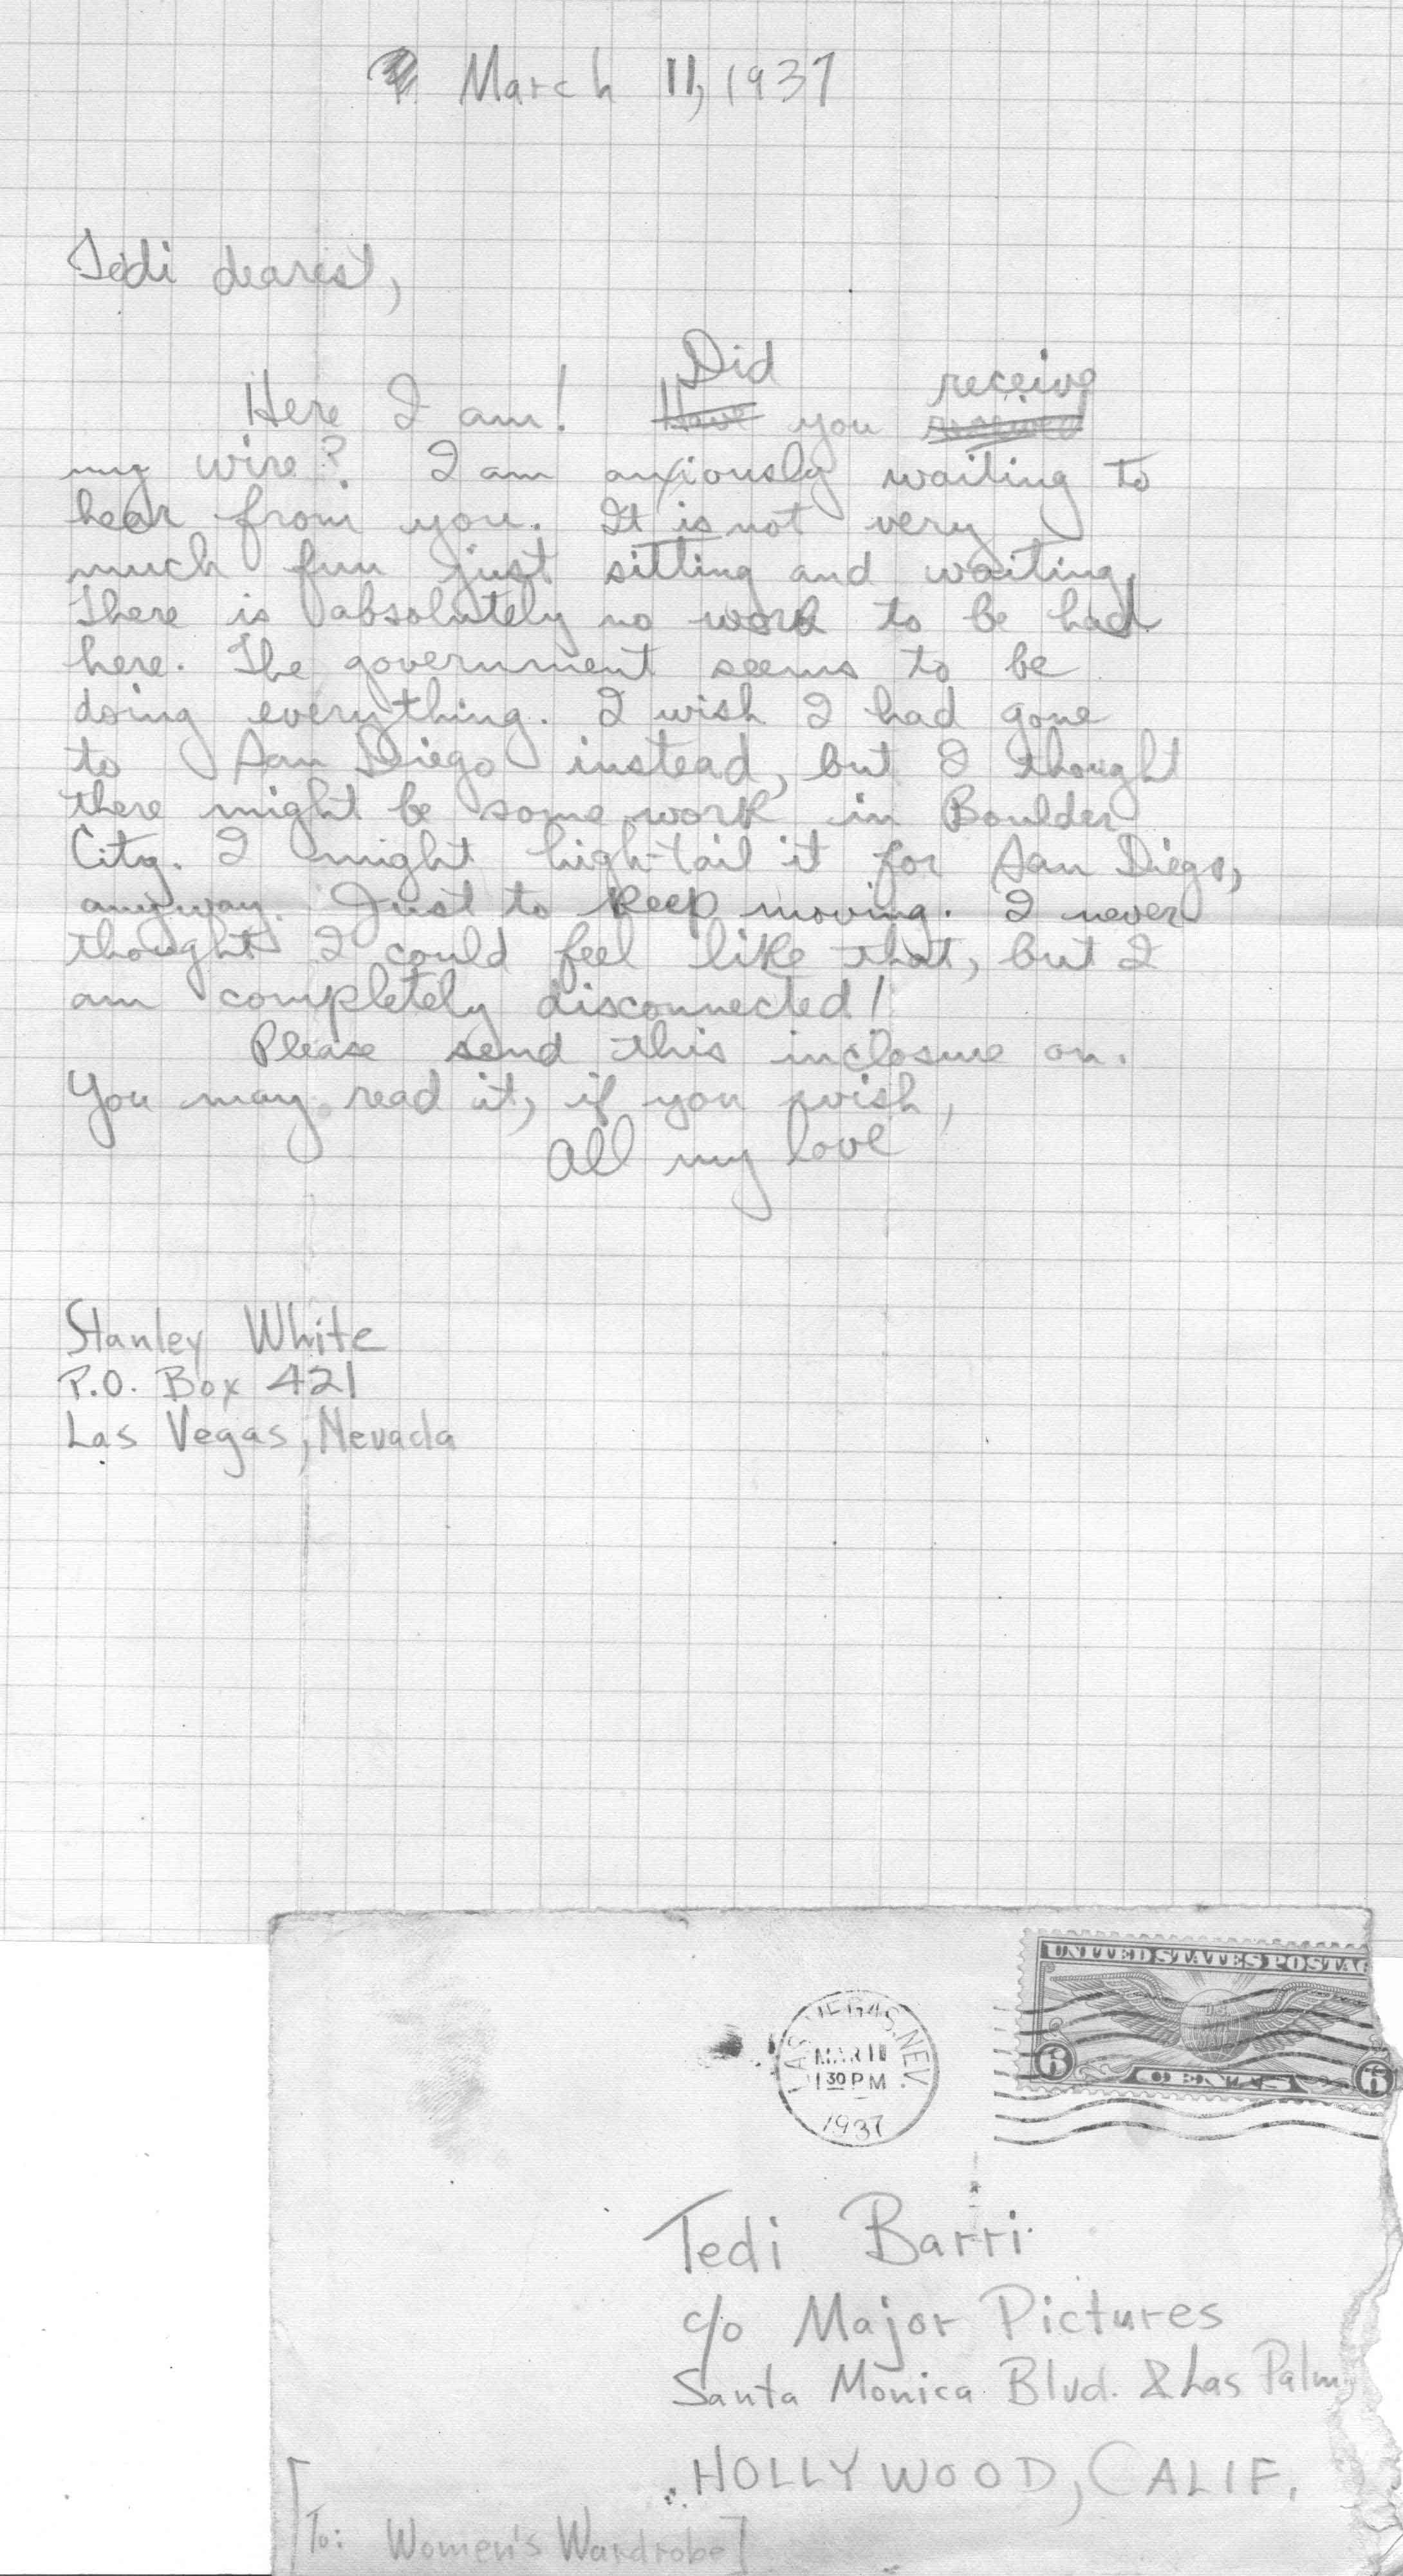 March 11, 1937
Tedi dearest,
Did receive
Here I am! Have you received
my wire? I am anxiously waiting to
hear from you. It is not very
much fun just sitting and waiting.
There is absolutely no work to be had
here. The government seems to be
doing everything. I wish I had gone
to San Diego instead, but I thought
there might be some work in Boulder
City. I might high-tail it for San Diego,
anyway. Just to keep moving. I never
thought I could feel like that, but I
am completely disconnected!
Please send this inclosure on.
You may read it, if you wish,
All my love
Stanley White
P.O. Box 421
Las Vegas, Nevada
UNITED STATES POSTAG
LAS VEGAS. NEV.
MAR 11
1 30 PM
1937
6 CENTS 6
Tedi Barri
c/o Major Pictures
Santa Monica Blvd. & Las Palm
HOLLYWOOD, CALIF.
[To: Women's Wardrobe]